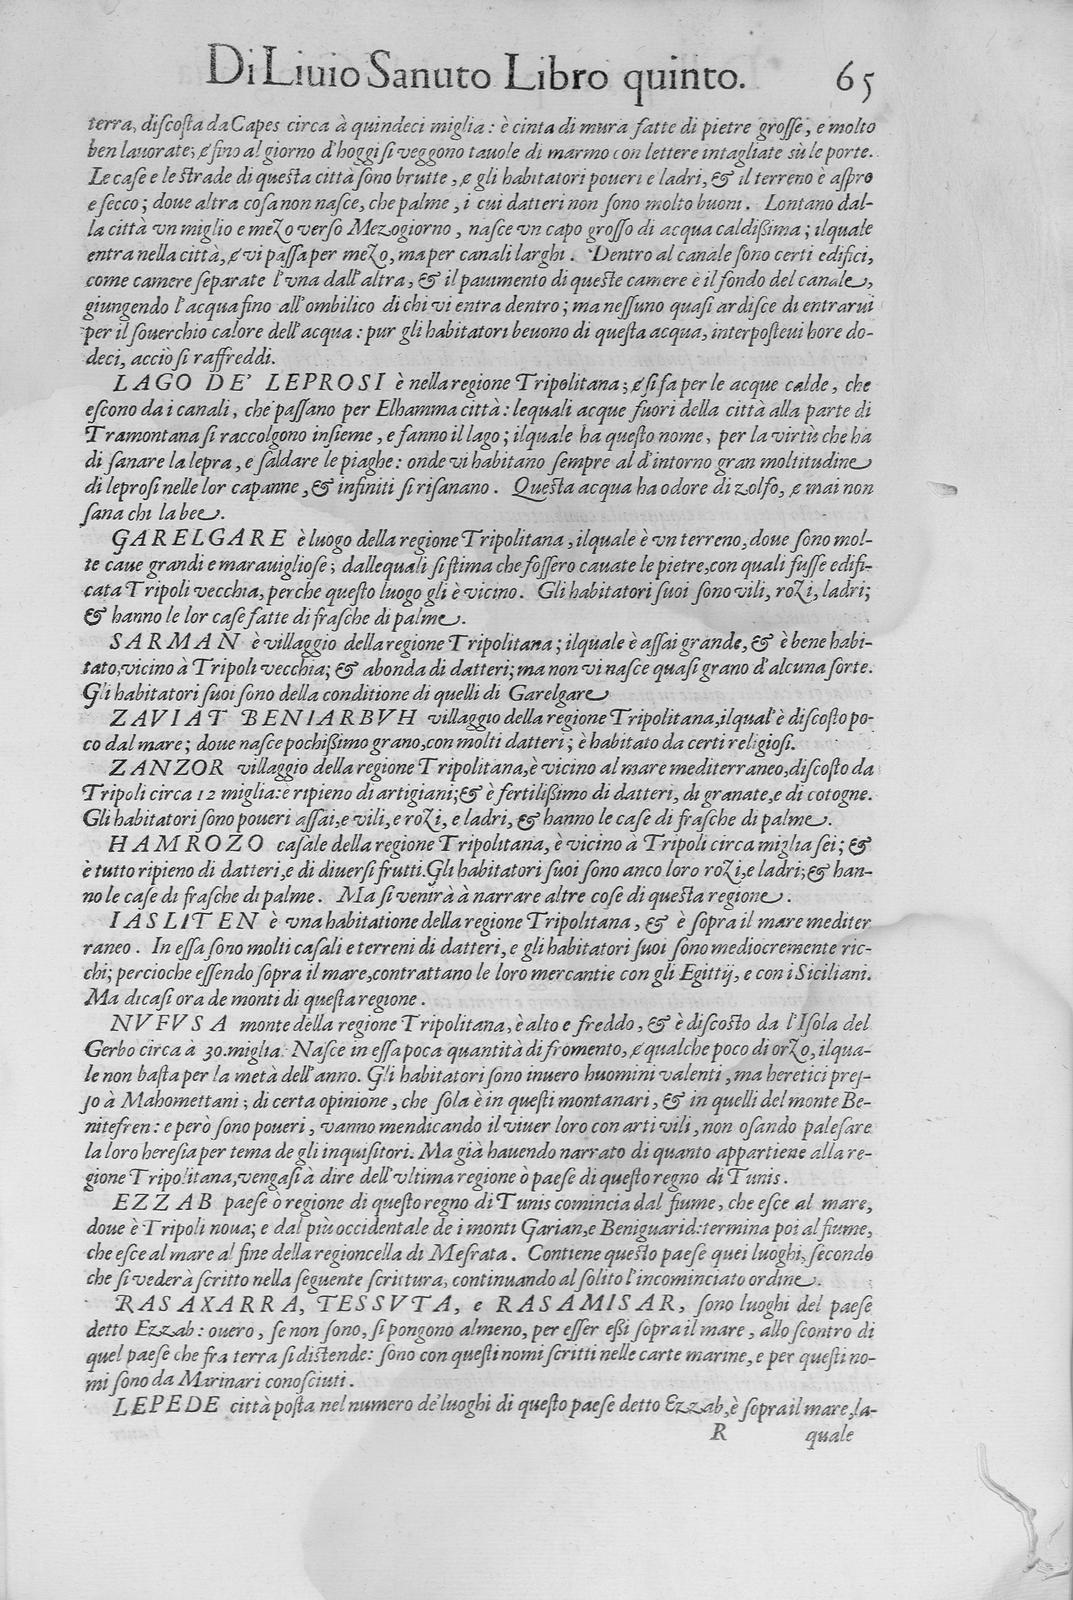 Di Liuio Sanuto Libro quinto. 65
terra, discosta da Capes circa à quindeci miglia: è cinta di mura fatte di pietre grosse, e molto
ben lauorate; & fino al giorno d'hoggi si veggono tauole di marmo con lettere intagliate sù le porte.
Le case e le strade di questa città sono brutte, & gli habitatori poueri e ladri, & il terreno è aspro
e secco; doue altra cosa non nasce, che palme, i cui datteri non sono molto buoni. Lontano dal-
la città vn miglio e mezo verso Mezogiorno, nasce vn capo grosso di acqua caldißima; ilquale
entra nella città, & vi passa per mezo, ma per canali larghi. Dentro al canale sono certi edifici,
come camere separate l'vna dall'altra, & il pauimento di queste camere è il fondo del canale,
giungendo l'acqua fino all'ombilico di chi vi entra dentro; ma nessuno quasi ardisce di entrarui
per il souerchio calore dell'acqua: pur gli habitatori beuono di questa acqua, interposteui hore do-
deci, acciò si raffreddi.
LAGO DE' LEPROSI è nella regione Tripolitana; & si fa per le acque calde, che
escono da i canali, che passano per Elhamma città: lequali acque fuori della città alla parte di
Tramontana si raccolgono insieme, e fanno il lago; ilquale ha questo nome, per la virtù che ha
di sanare la lepra, e saldare le piaghe: onde vi habitano sempre al d'intorno gran moltitudine
di leprosi nelle lor capanne, & infiniti si risanano. Questa acqua ha odore di zolfo, & mai non
sana chi la bee.
GARELGARE è luogo della regione Tripolitana, ilquale è vn terreno, doue sono mol-
te caue grandi e marauigliose; dallequali si stima che fossero cauate le pietre, con quali fusse edifi-
cata Tripoli vecchia, perche questo luogo gli è vicino. Gli habitatori suoi sono vili, rozi, ladri;
& hanno le lor case fatte di frasche di palme.
SARMAN è villaggio della regione Tripolitana; ilquale è assai grande, & è bene habi-
tato, vicino à Tripoli vecchia; & abonda di datteri; ma non vi nasce quasi grano d'alcuna sorte.
Gli habitatori suoi sono della conditione di quelli di Garelgare
ZAVIAT BENIARBVH villaggio della regione Tripolitana, ilqual'è discosto po-
co dal mare; doue nasce pochißimo grano, con molti datteri; è habitato da certi religiosi.
ZANZOR villaggio della regione Tripolitana, è vicino al mare mediterraneo, discosto da
Tripoli circa 12 miglia: è ripieno di artigiani; & è fertilißimo di datteri, di granate, e di cotogne.
Gli habitatori sono poueri assai, e vili, e rozi, e ladri, & hanno le case di frasche di palme.
HAMROZO casale della regione Tripolitana, è vicino à Tripoli circa miglia sei; &
è tutto ripieno di datteri, e di diuersi frutti. Gli habitatori suoi sono anco loro rozi, e ladri; & han-
no le case di frasche di palme. Ma si venirà à narrare altre cose di questa regione.
IASLITEN è vna habitatione della regione Tripolitana, & è sopra il mare mediter
raneo. In essa sono molti casali e terreni di datteri, e gli habitatori suoi sono mediocremente ric-
chi; percioche essendo sopra il mare, contrattano le loro mercantie con gli Egittij, e con i Siciliani.
Ma dicasi ora de monti di questa regione.
NVFVSA monte della regione Tripolitana, è alto e freddo, & è discosto da l'Isola del
Gerbo circa à 30. miglia. Nasce in essa poca quantità di fromento, & qualche poco di orzo, ilqua-
le non basta per la metà dell'anno. Gli habitatori sono inuero huomini valenti, ma heretici pres-
so à Mahomettani; di certa opinione, che sola è in questi montanari, & in quelli del monte Be-
nitefren: e però sono poueri, vanno mendicando il viuer loro con arti vili, non osando palesare
la loro heresia per tema de gli inquisitori. Ma già hauendo narrato di quanto appartiene alla re-
gione Tripolitana, vengasi à dire dell'vltima regione ò paese di questo regno di Tunis.
EZZAB paese ò regione di questo regno di Tunis comincia dal fiume, che esce al mare,
doue è Tripoli noua; e dal più occidentale de i monti Garian, e Beniguarid: termina poi al fiume,
che esce al mare al fine della regioncella di Mesrata. Contiene questo paese quei luoghi, secondo
che si vederà scritto nella seguente scrittura, continuando al solito l'incominciato ordine.
RASAXARRA, TESSVTA, e RASAMISAR, sono luoghi del paese
detto Ezzab: ouero, se non sono, si pongono almeno, per esser eßi sopra il mare, allo scontro di
quel paese che fra terra si distende: sono con questi nomi scritti nelle carte marine, e per questi no-
mi sono da Marinari conosciuti.
LEPEDE città posta nel numero de' luoghi di questo paese detto Ezzab, è sopra il mare, la-
R quale